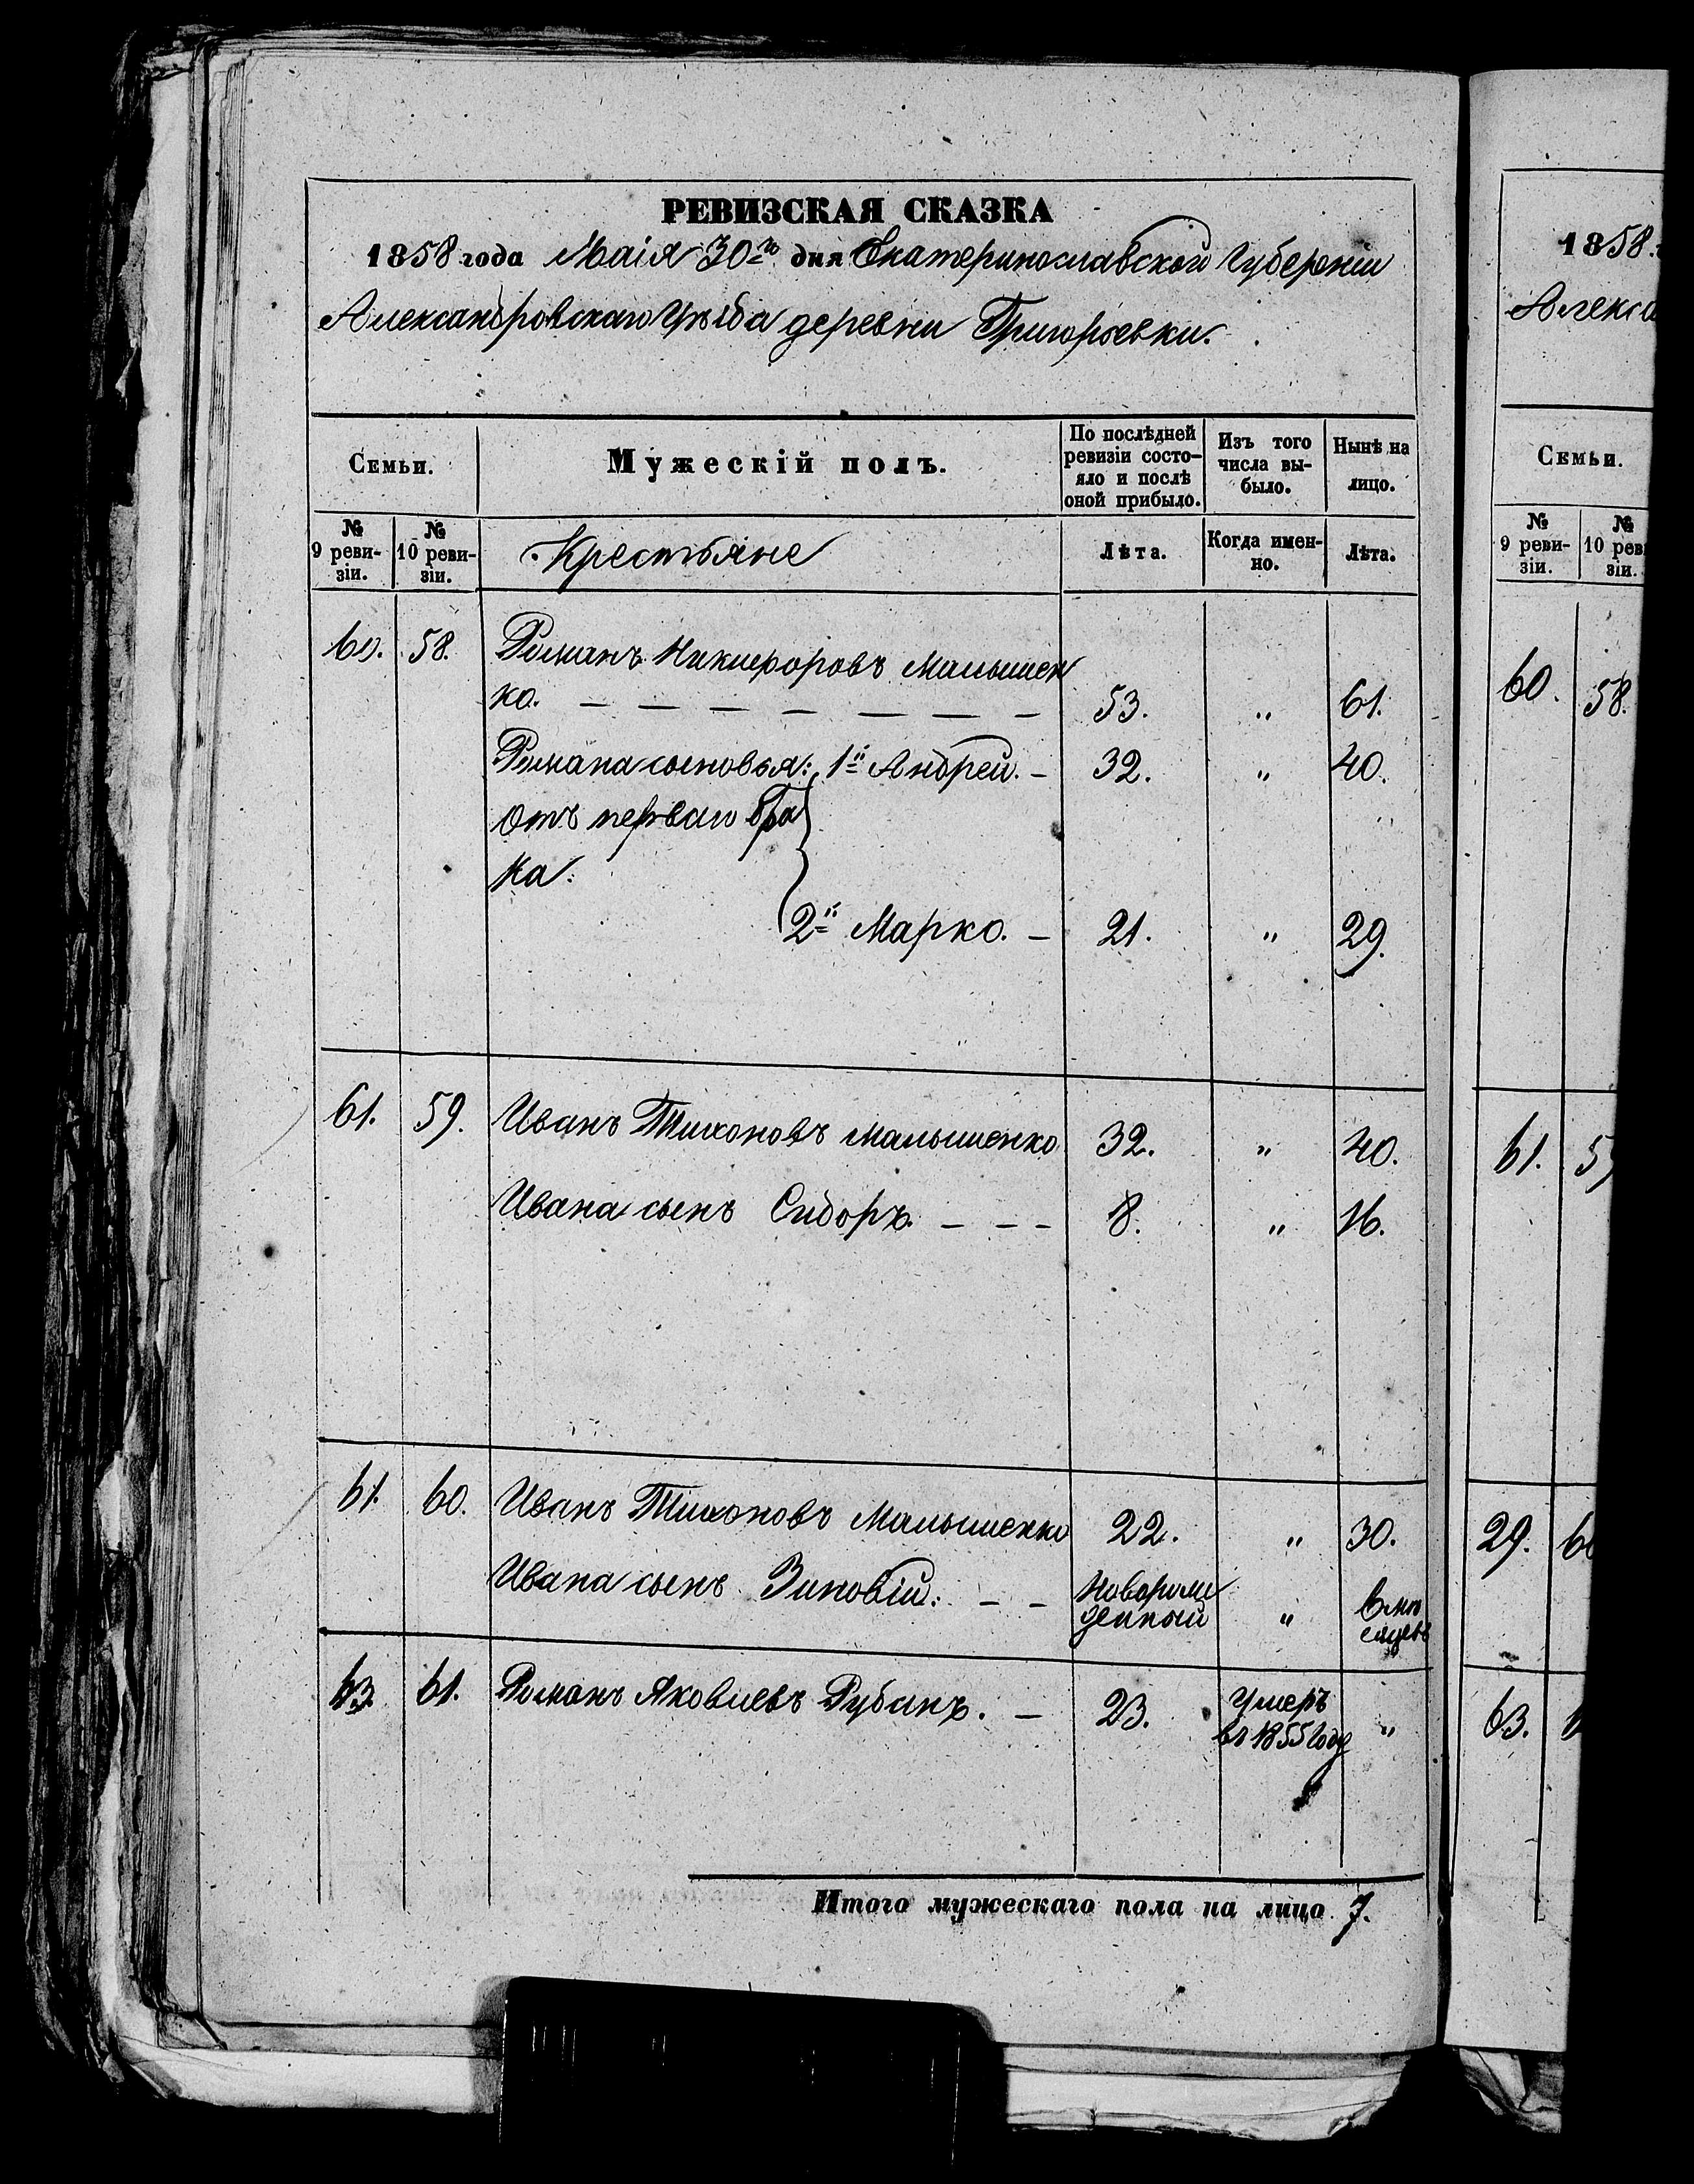 РЕВИЗСКАЯ СКАЗКА
1858 года Маія 30го дня Екатеринославской Губерніи
Александровскаго Уѣзда деревни Григорьевки.
Семьи.
Мужескій полъ.
По послѣдней
ревизіи состо-
яло и послѣ
оной прибыло.
Изъ того
числа вы-
было.
Нынѣ на
лицо.
№
9 реви-
зіи.
№
10 реви-
зіи.
Крестьяне
Лѣта.
Когда имен-
но.
Лѣта.
60. 58. Романъ Никифоровъ Малышен
ко. — — — — — — — 53. " 61.
Романа сыновья: 1й Андрей. — 32. " 40.
отъ перваго бра
ка:
2й Марко. — 21. " 29.
61. 59. Иванъ Тихоновъ Малышенко 32. " 40.
Ивана сынъ Сидоръ. — — — 8. " 16.
61. 60. Иванъ Тихоновъ Малышенко 22. " 30.
Ивана сынъ Зиновій. — — Новорож
денный " 6 мѣ
сяцевъ
63. 61. Романъ Яковлевъ Рубанъ. — 23. Умеръ
въ 1855 году "
Итого мужескаго пола на лицо 7.
1858.
Алекса
Семьи.
№
9 реви-
зіи.
№
10 рев
зіи.
60. 58.
61. 59
29. 60
63.